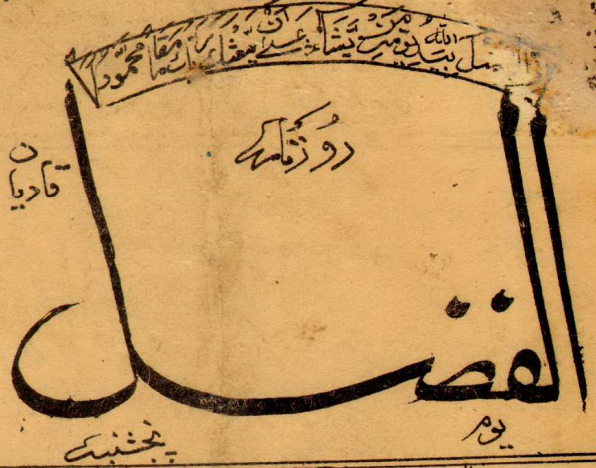 الفضل بيد الله يؤتيه من يشاء عسى ان يبعثك ربك مقاما محمودا
روزنامہ
قادیان
الفضل
یوم
پنجشنبہ